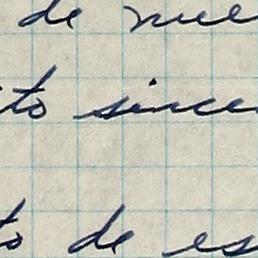 de nue
to since
to de es